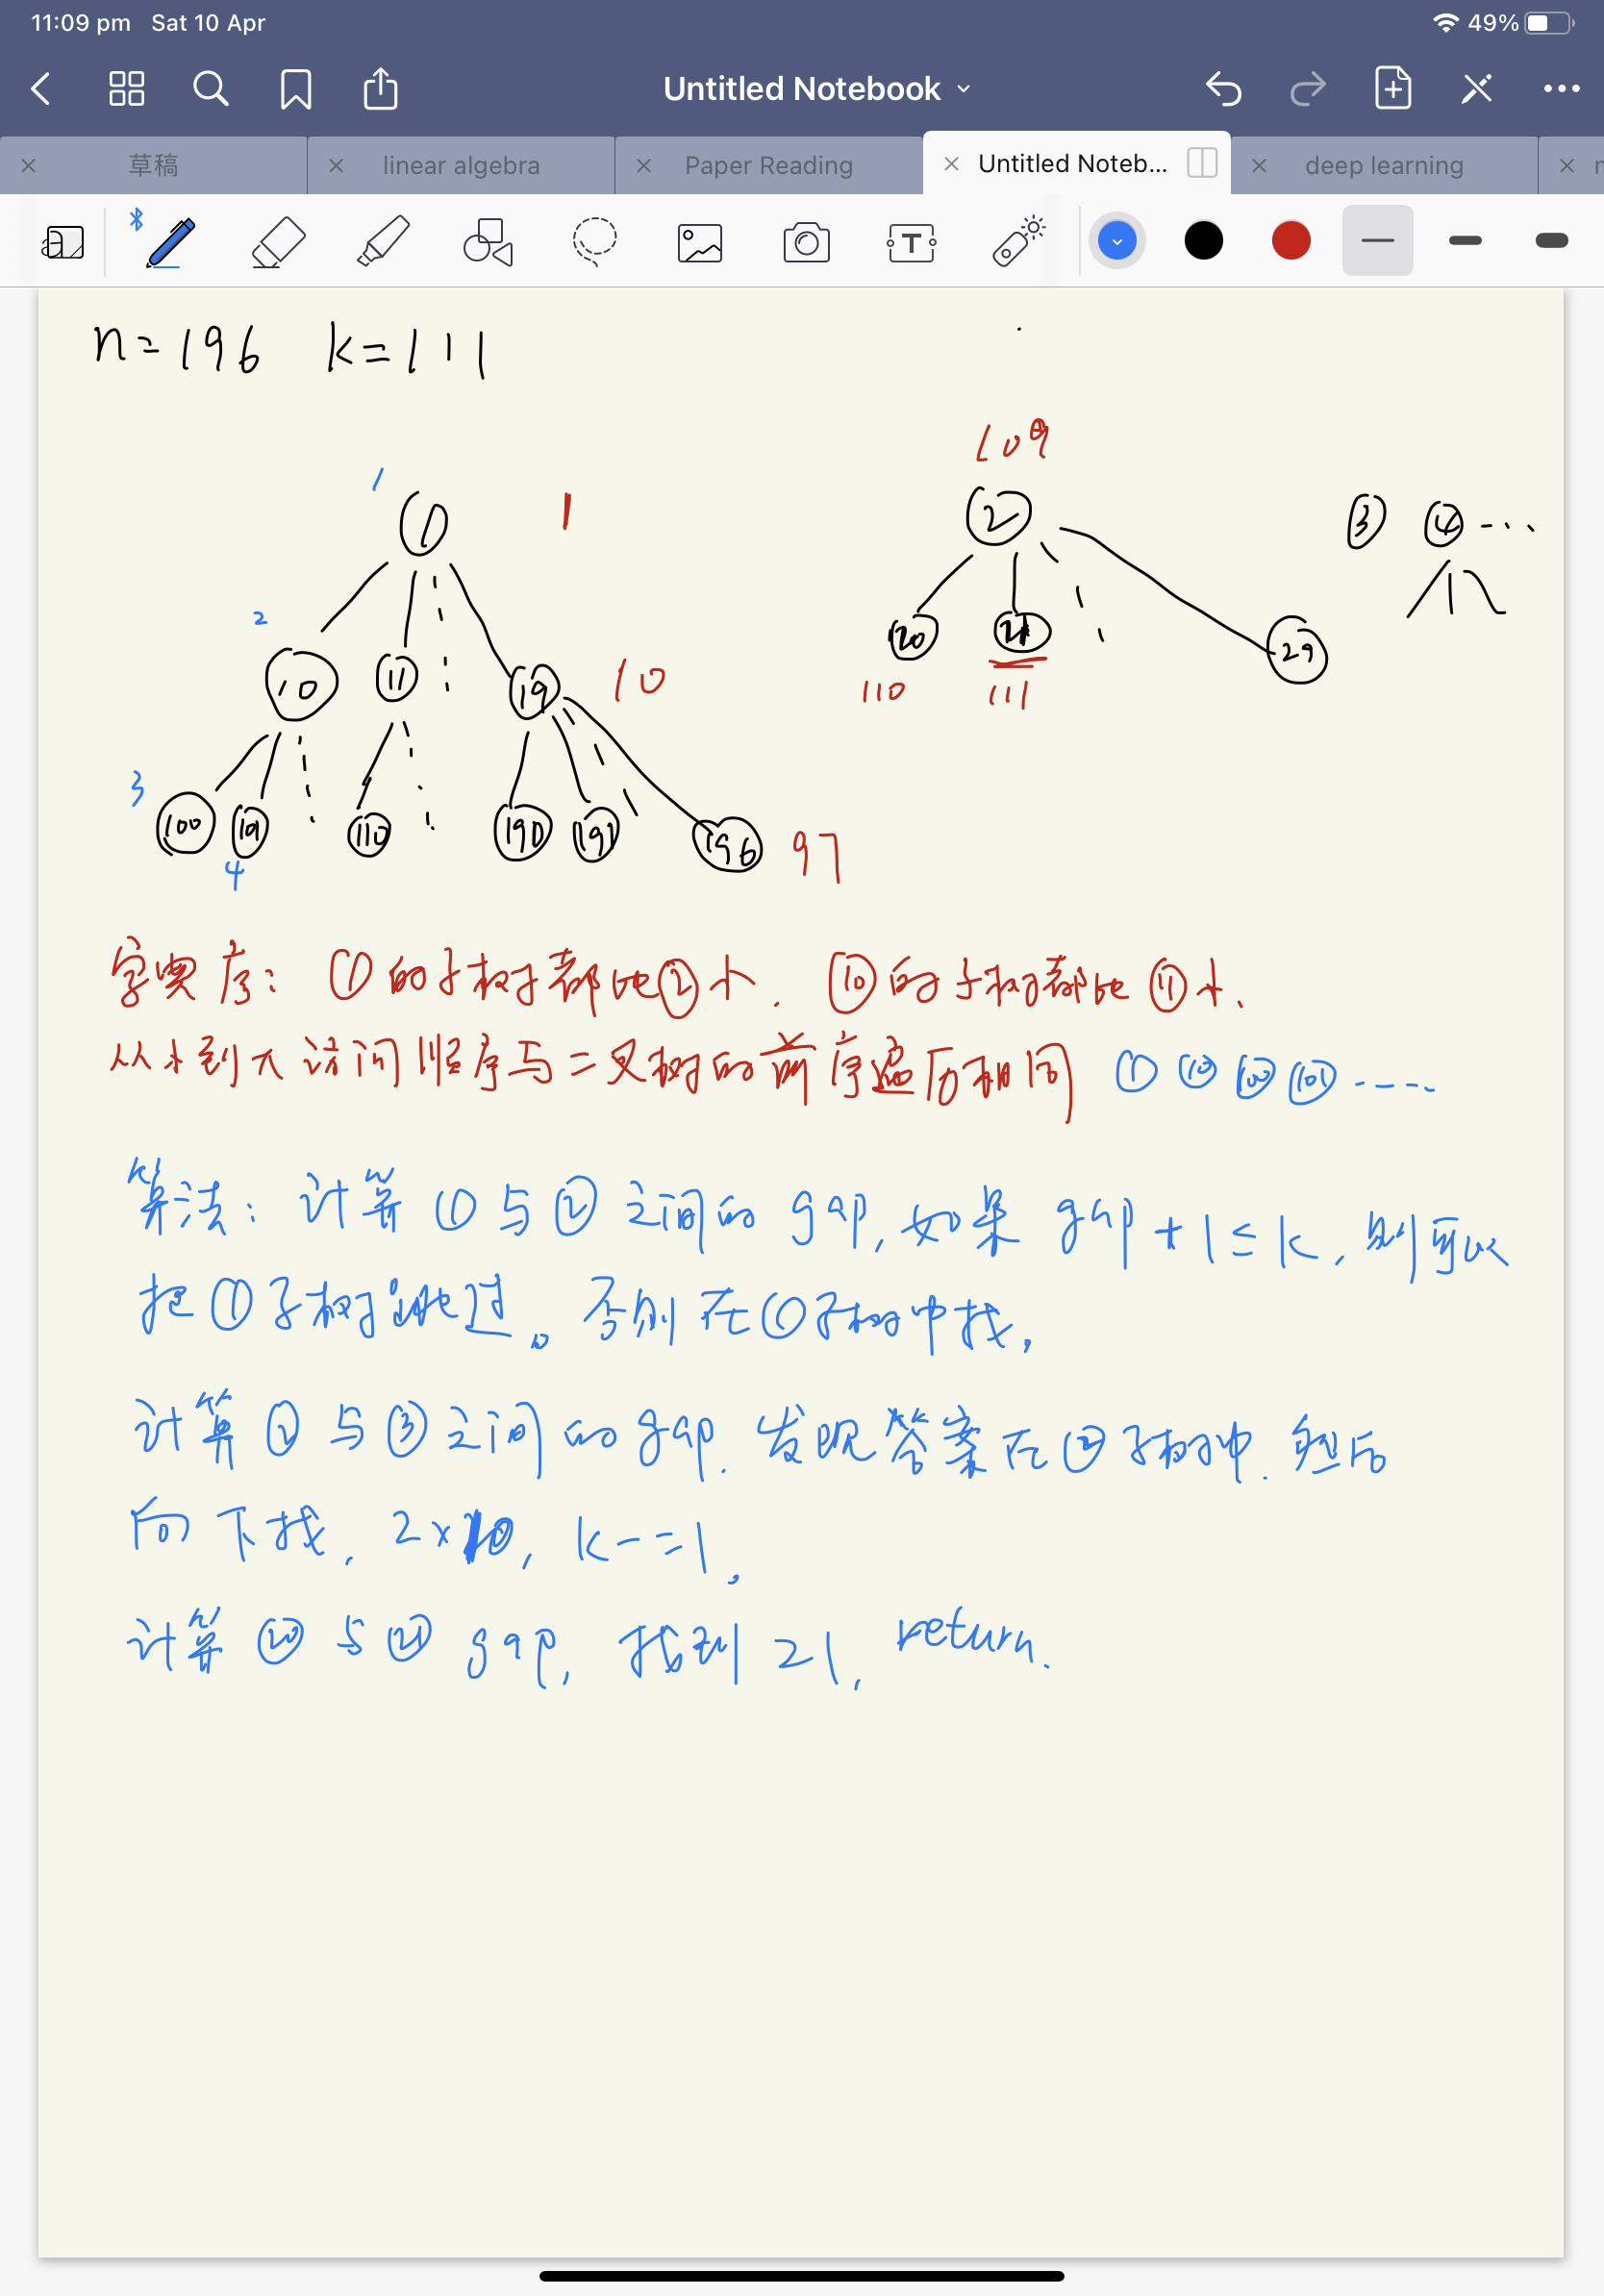 11:09 pm Sat 10 Apr 49%
Untitled Notebook
草稿 linear algebra Paper Reading Untitled Noteb... deep learning
n=196 k=111
109
1 ① 1 ② ③ ④ ...
2 ⑩ ⑪ ⑲ 10 ⑳ 21 29
110 111
3 100 101 110 190 191 196 97
4
字典序: ①的子树都比②小. ⑩的子树都比⑪小.
从小到大访问顺序与二叉树的前序遍历相同 ① ⑩ 100 101 .....
算法: 计算①与②之间的gap, 如果 gap+1≤k, 则可以
把①子树跳过。否则在①子树中找,
计算②与③之间的gap. 发现答案在②子树中. 然后
向下找. 2×10, k-=1,
计算⑳与㉑ gap, 找到 21, return.